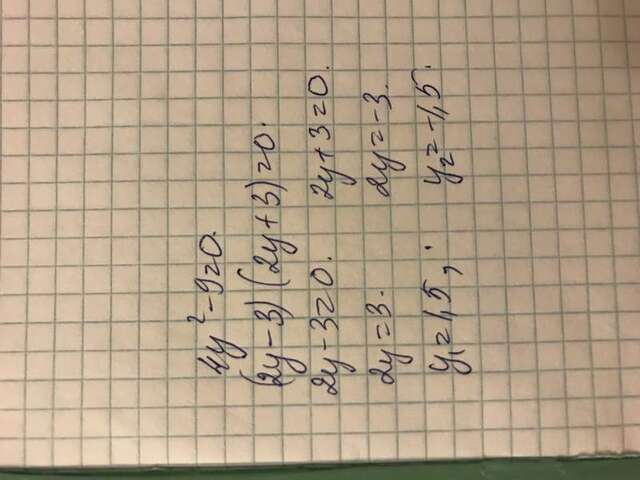 4y²-9=0.
(2y-3)(2y+3)=0.
2y-3=0. 2y+3=0.
2y=3. 2y=-3.
y₁=1,5, y₂=-1,5.